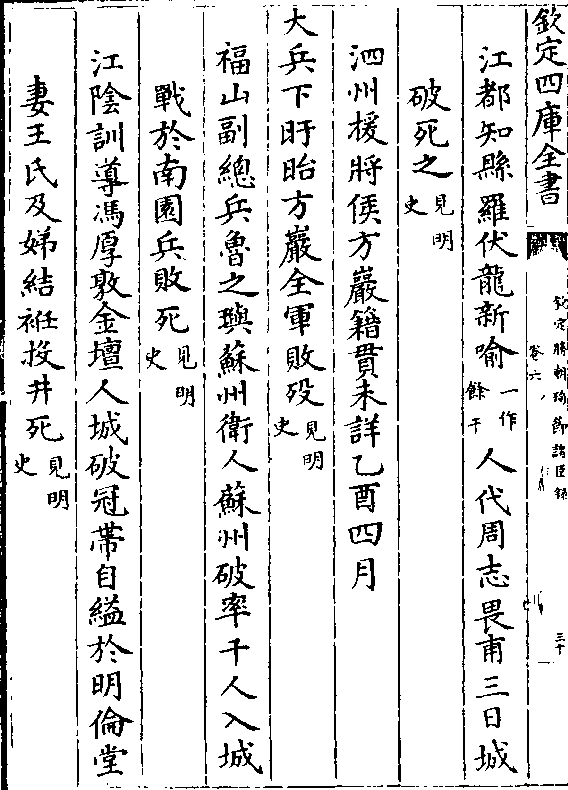 欽定四庫全書
欽定勝朝殉節諸臣錄
卷六
三十
江都知縣羅伏龍新喻一作餘干人代周志畏甫三日城
破死之見明史
泗州援將侯方巖籍貫未詳乙酉四月
大兵下盱眙方巖全軍敗歿見明史
福山副總兵魯之璵蘇州衛人蘇州破率千人入城
戰於南園兵敗死見明史
江陰訓導馮厚敦金壇人城破冠帶自縊於明倫堂
妻王氏及娣結袵投井死見明史